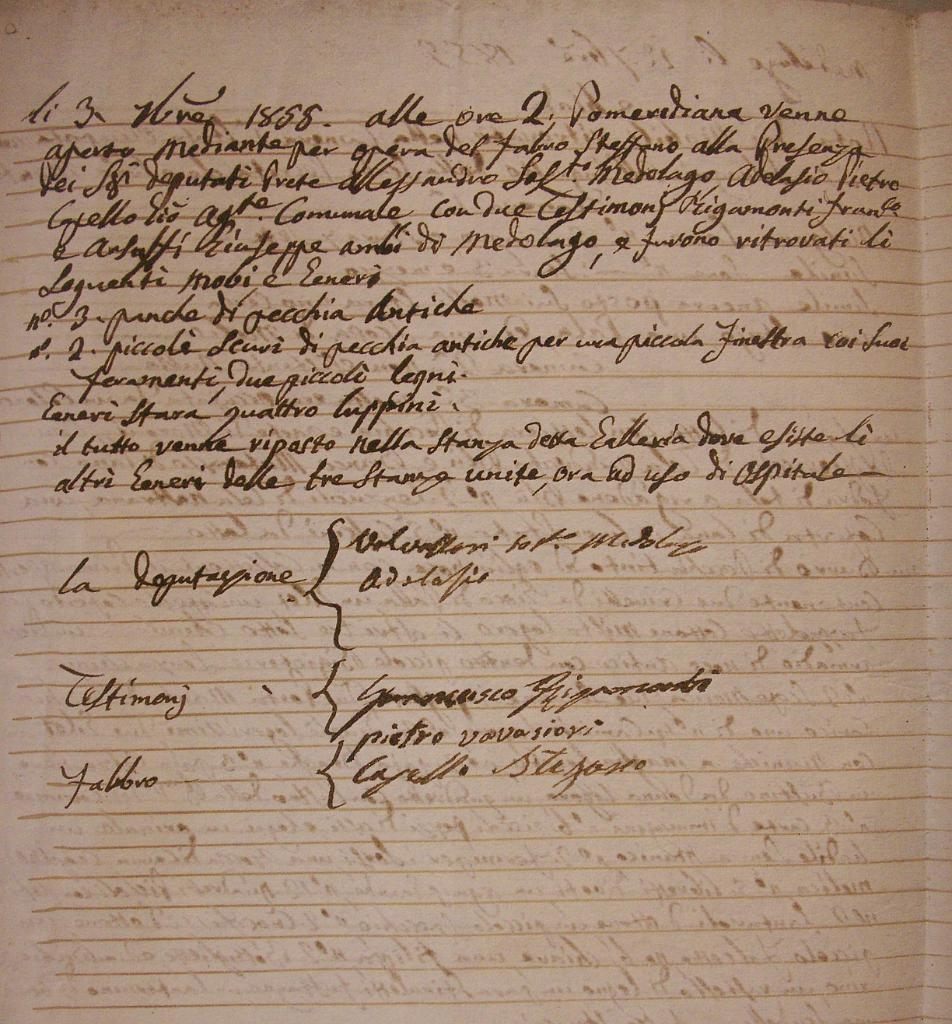 li 3. Nbre, 1855. alle ore 2. Pomeridiana venne
aperto mediante per opera del fabro Steffano alla Presenza
dei Sigi deputati Prete Allessandro Sostto Medolago, Adelasio Pietro
Capello Agte Comunale con due Testimonj Rigamonti Franco
e Giuseppe ambi di Medolago, e furono ritrovati li
Seguenti Mobi, e Eeneri
no. 3. panche di pecchia Antiche
n. 2. piccoli Scuri di pecchia antiche per una piccola finestra coi suoi
feramenti, due piccoli legni.
Eeneri Stara quattro luppini.
il tutto venne riposto nella Stanza detta Galleria dove esiste li
altri Eeneri delle tre Stanze unite, ora ad uso di Ospitale
la deputazzione
Medolago
Adelasio
Testimonj
Francesco Rigamonti
pietro vavasiori
Fabbro
Capello Steffano